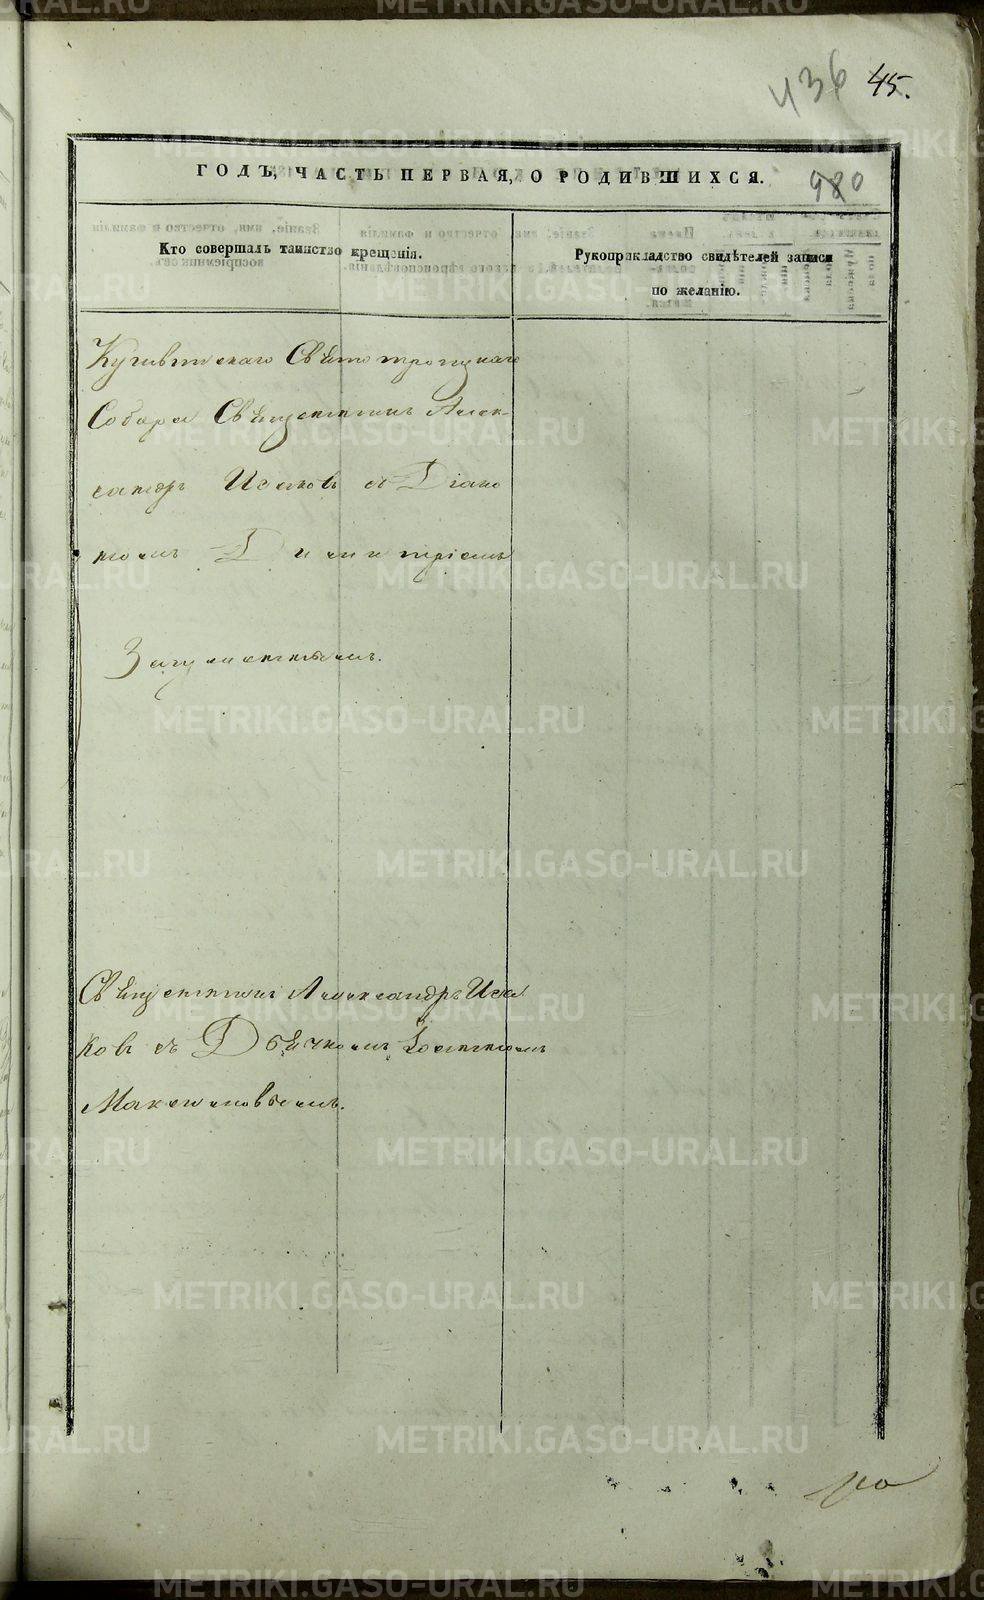 436 45.
ГОДЪ, ЧАСТЬ ПЕРВАЯ, О РОДИВШИХСЯ.
980
Кто совершалъ таинство крещенія.
Рукоприкладство свидѣтелей записи
по желанію.
Свято троицкаго
Собора Священникъ Алек-
сандръ Исаковъ съ Діако
номъ Димитріемъ
Загуменнымъ.
Священникъ Александръ Иса
ковъ съ Дьячкомъ Іоанномъ
Максимовымъ.
METRIKI.GASO-URAL.RU